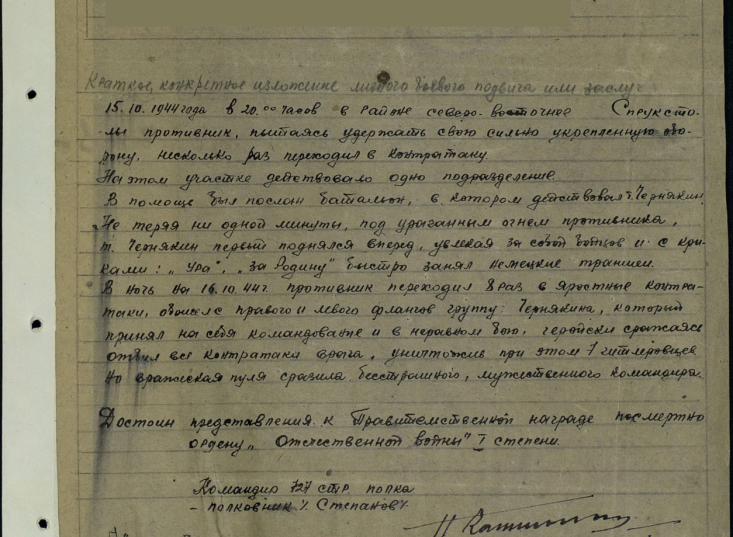 Краткое, конкретное изложение личного боевого подвига или заслуг
15.10.1944 года в 20.00 часов в районе северо-восточное Спруксто-
лы противник, пытаясь удержать свою сильно укрепленную обо-
рону, несколько раз переходил в контратаку.
На этом участке действовало одно подразделение.
В помощь был послан батальон, в котором действовал т. Чернякин.
Не теряя ни одной минуты, под ураганным огнем противника,
т. Чернякин первый поднялся вперед, увлекая за собой бойцов и с кри-
ками: „Ура", „за Родину" быстро занял немецкие траншеи.
В ночь на 16.10.44г. противник переходил 8 раз в яростные контра-
таки, обошел с правого и левого флангов группу: Чернякина, который
принял на себя командование и в неравном бою, геройски сражаясь
отбил все контратаки врага, уничтожив при этом 7 гитлеровцев.
Но вражеская пуля сразила бесстрашного, мужественного командира.
Достоин представления к Правительственной награде посмертно
ордену „Отечественной войны" I степени.
Командир 727 стр. полка
- полковник /. Степанов /.